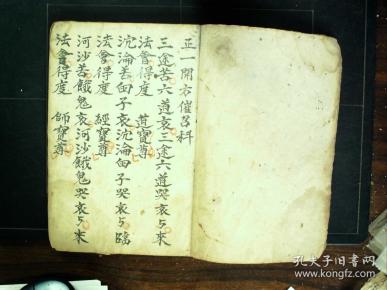 正一開方催召科
三途苦六道哀三途六道哭哀与來
法會得度 道寳尊
沉淪苦 子哀沉淪 子哭哀与臨
法會得度 經寳尊
河沙苦餓鬼哀河沙餓鬼哭哀与來
法會得度 師寳尊
孔夫子旧书网
www.kongfz.com